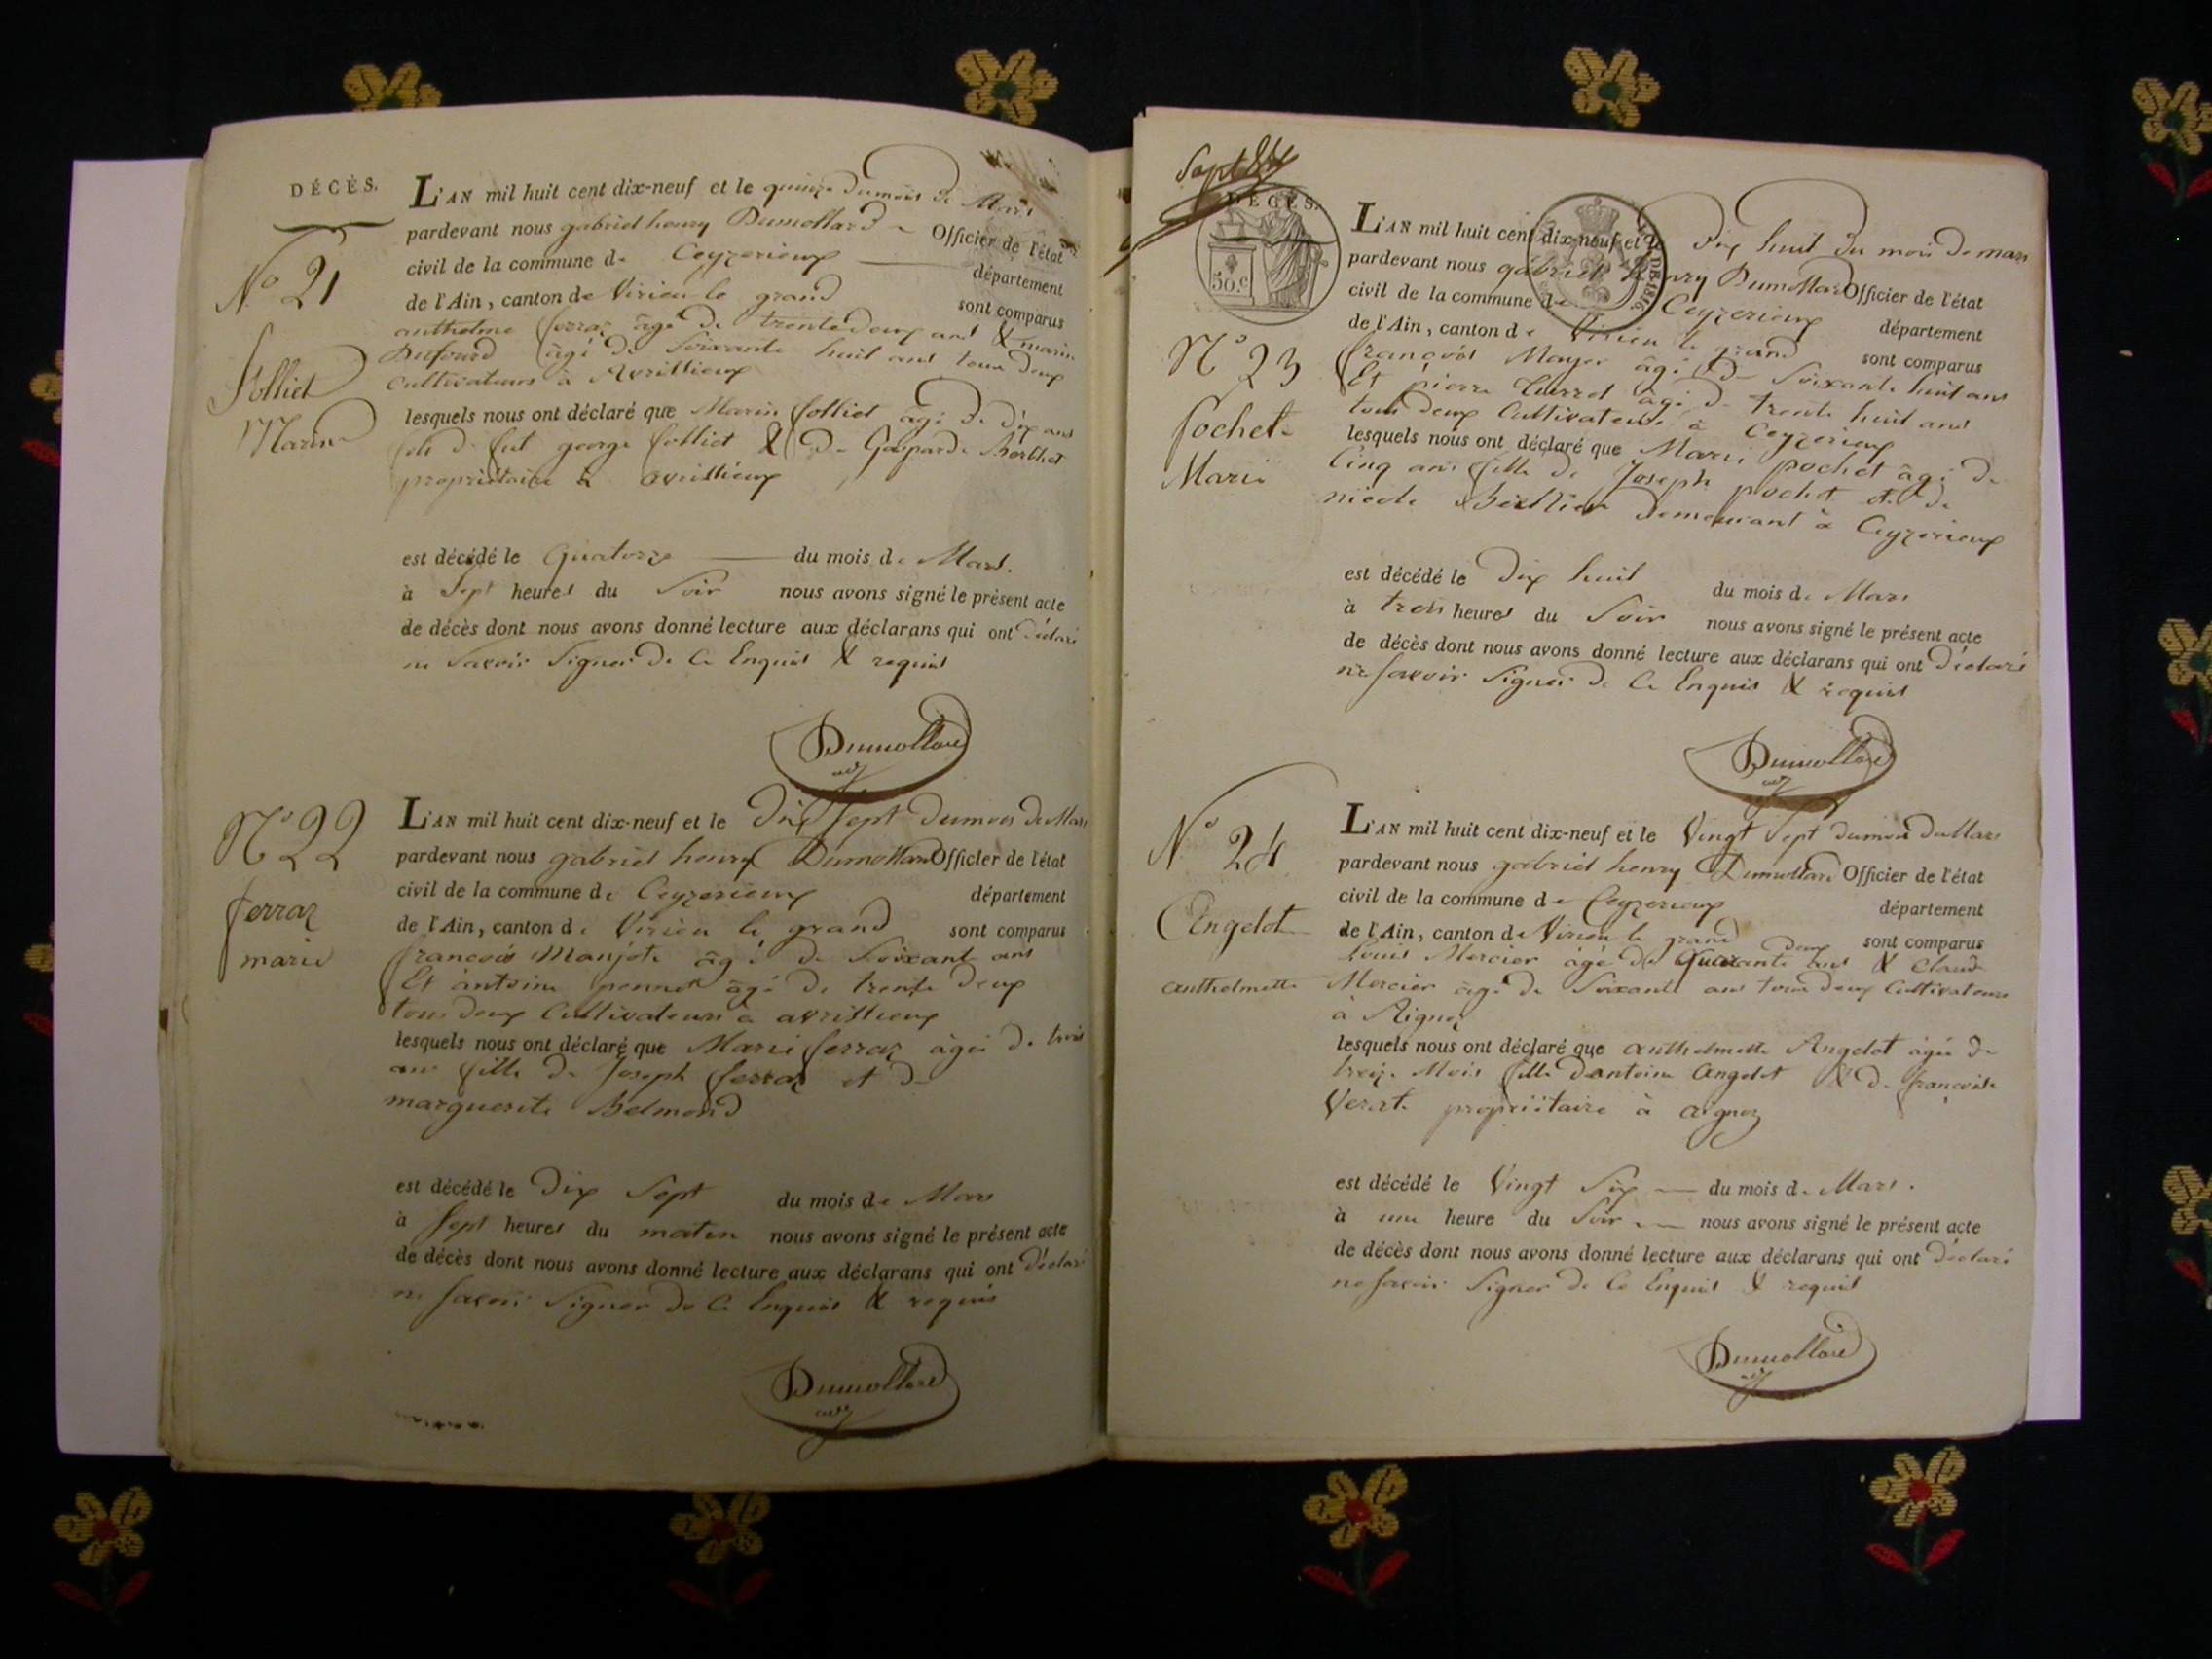 DÉCÈS.
N.o 21
folliet
Marin
L'AN mil huit cent dix-neuf et le quinze du mois de Mars
pardevant nous gabriel henry Dumollard Officier de l'état
civil de la commune de Ceyzerieux département
de l'Ain, canton de Virieu le grand sont comparus
anthelme ferraz âgé de trente deux ans & marin
Dufourd âgé de soixante huit ans tous deux
cultivateurs à Avrissieux
lesquels nous ont déclaré que Marin folliet âgé de dix ans
fils de fut george folliet & de Gasparde Berthet
propriétaire à avrissieux
est décédé le Quatorze du mois de Mars.
à sept heures du soir nous avons signé le présent acte
de décès dont nous avons donné lecture aux déclarans qui ont déclaré
ne savoir signer de ce enquis & requis
Dumollard
adj
N.o 22
ferraz
marie
L'AN mil huit cent dix-neuf et le dix sept du mois de Mars
pardevant nous gabriel henry Dumollard Officier de l'état
civil de la commune de Ceyzerieux département
de l'Ain, canton de Virieu le grand sont comparus
francois Manjot âgé de soixante ans
Et antoine pennet âgé de trente deux
tous deux cultivateurs à avrissieux
lesquels nous ont déclaré que Marie ferraz âgée de trois
ans fille de Joseph ferraz et de
marguerite Belmond
est décédé le dix sept du mois de Mars
à sept heures du matin nous avons signé le présent acte
de décès dont nous avons donné lecture aux déclarans qui ont déclaré
ne savoir signer de ce enquis & requis
Dumollard
adj
DÉCÈS.
50.c
DE 1816
N.o 23
pochet
Marie
L'AN mil huit cent dix-neuf et le dix huit du mois de mars
pardevant nous gabriel henry Dumollard Officier de l'état
civil de la commune de Ceyzerieux département
de l'Ain, canton de Virieu le grand sont comparus
françois Mayer âgé de soixante huit ans
Et pierre Curret âgé de trente huit ans
tous deux cultivateurs à Ceyzerieux
lesquels nous ont déclaré que Marie pochet âgée de
cinq ans fille de Joseph pochet et de
nicole demeurant à Ceyzerieux
est décédé le dix huit du mois de Mars
à trois heures du soir nous avons signé le présent acte
de décès dont nous avons donné lecture aux déclarans qui ont déclaré
ne savoir signer de ce enquis & requis
Dumollard
adj
N.o 24
Angelot
anthelmette
L'AN mil huit cent dix-neuf et le vingt sept du mois de Mars
pardevant nous gabriel henry Dumollard Officier de l'état
civil de la commune de Ceyzerieux département
de l'Ain, canton de Virieu le grand sont comparus
Louis Mercier âgé de quarante deux ans & Claude
Mercier âgé de soixante ans tous deux cultivateurs
à Aignoz
lesquels nous ont déclaré que anthelmette Angelot âgée de
treize Mois fille d'antoine angelot & de françoise
propriétaire à aignoz
est décédé le vingt six du mois de Mars.
à une heure du soir nous avons signé le présent acte
de décès dont nous avons donné lecture aux déclarans qui ont déclaré
ne savoir signer de ce enquis & requis
Dumollard
adj